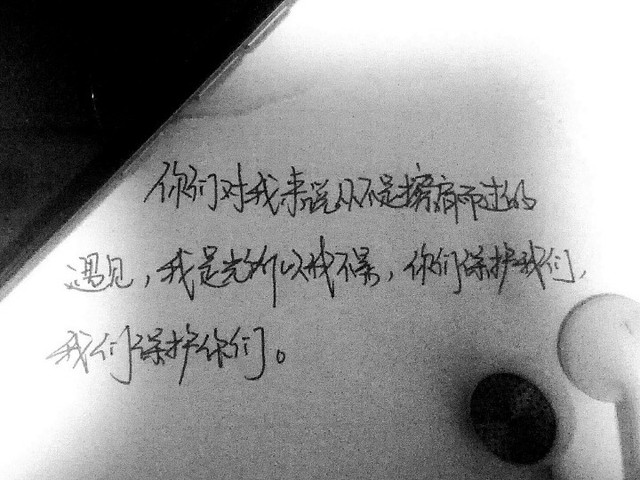 你们对我来说从不是擦肩而过的
遇见，我是光所以我不累，你们保护我们，
我们保护你们。